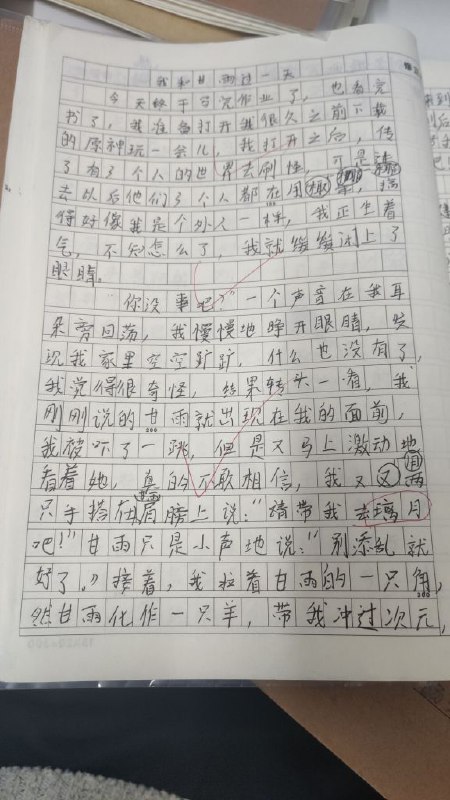 我和甘雨过一天
今天终于写完作业了，也看完
书了，我准备打开我很久之前下载
的原神玩一会儿，我打开之后，传
了有3个人的世界去刷怪，可是
去以后他们3个人都在用，搞
得好像我是个外人一样，我正生着
气，不知怎么了，我就缓缓闭上了
眼睛。
“你没事吧？”一个声音在我耳
朵旁回荡，我慢慢地睁开眼睛，发
现我家里空空旷旷，什么也没有了，
我觉得很奇怪，结果转头一看，我
刚刚说的甘雨就出现在我的面前，
我被吓了一跳，但是又马上激动地
看着她，真的不敢相信，我又用两
只手搭在肩膀上说：“请带我去璃月
吧！”甘雨只是小声地说：“别添乱就
好了。”接着，我拉着甘雨的一只角，
然甘雨化作一只羊，带我冲过次元，